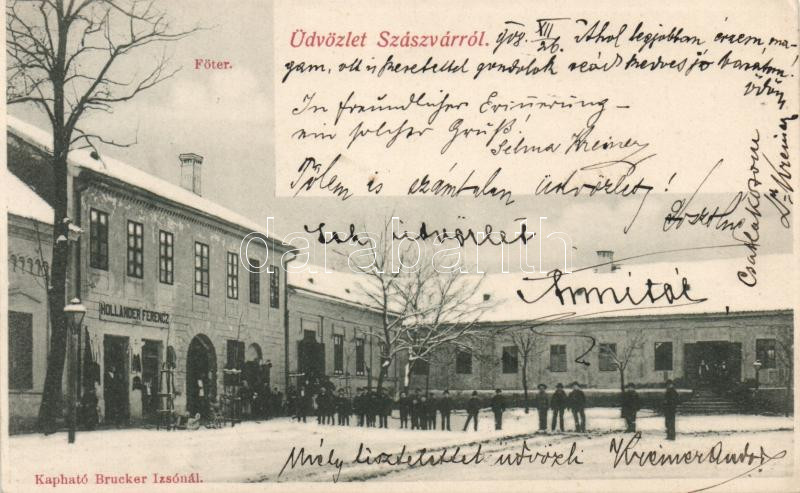 Üdvözlet Szászvárról.
908. XII/26. Ahol legjobban érzem ma-
gam, ott is szeretettel gondolok reád kedves jó barátom!
Ödön
Főter.
In freundlicher Erinnerung –
ein solcher Gruß!
Selma Kreiner
Tőlem is számtalan üdvözlet!
Csatlakozom
Dr. Kreiner
Sok üdvözlet
Armitól
darabanth.com
HOLLÄNDER FERENCZ
Mély tisztelettel üdvözli Kreiner Andor
Kapható Brucker Izsónál.